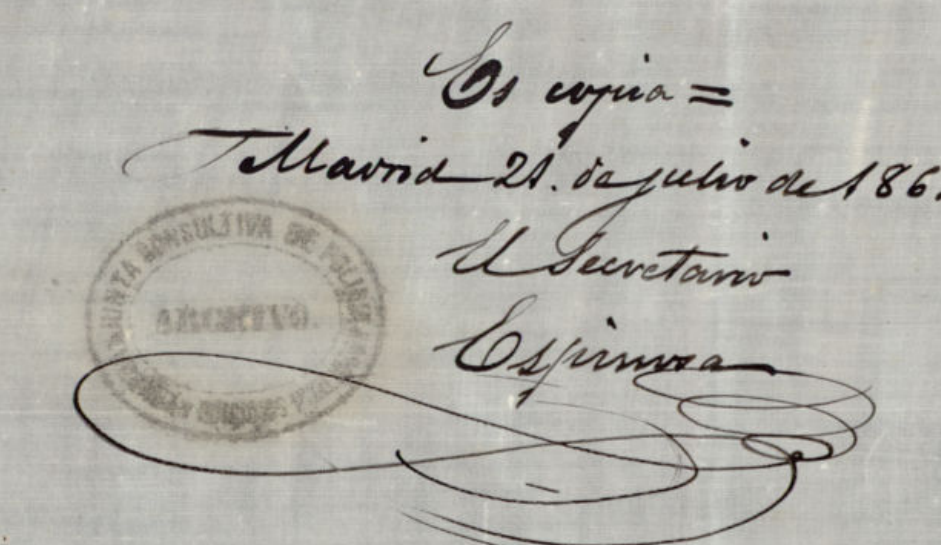 Es copia =
Madrid 21. de julio de 186
El Secretario
Espinosa
JUNTA CONSULTIVA DE POLICIA
ARCHIVO.